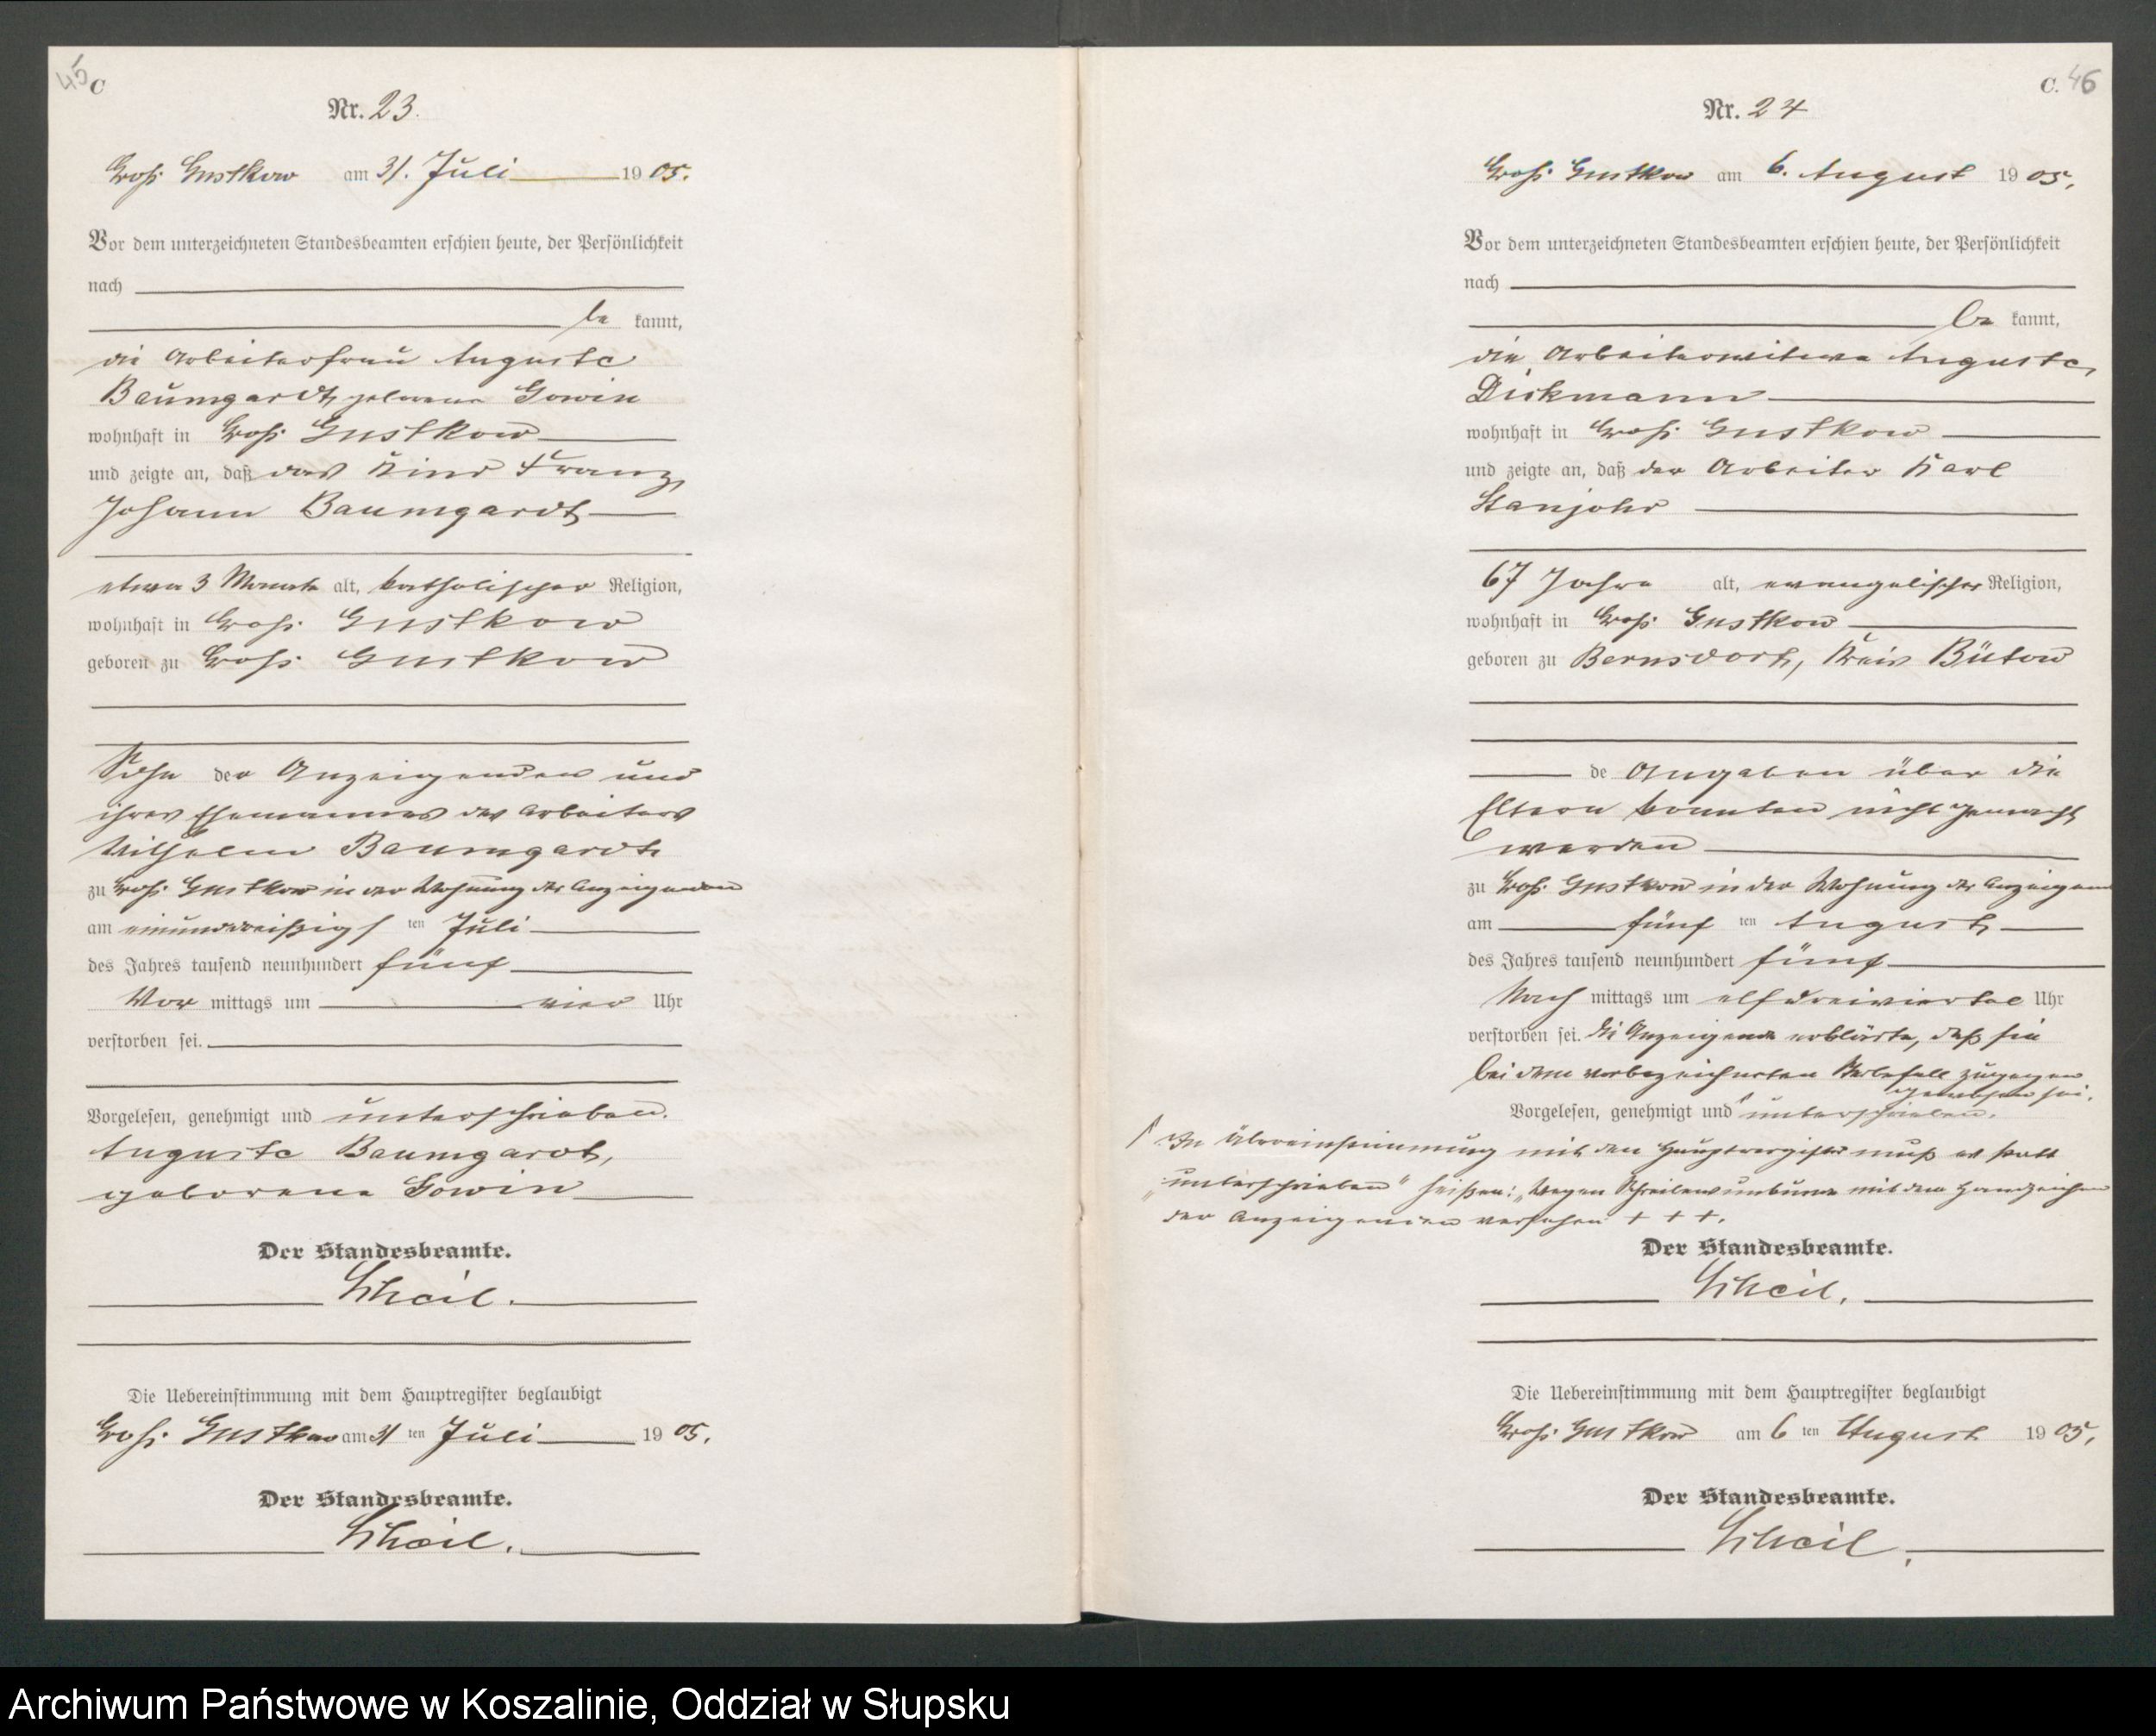 45
C
Nr. 23.
Groß Gustkow am 31. Juli 1905.
Vor dem unterzeichneten Standesbeamten erschien heute, der Persönlichkeit
nach
be kannt,
die Arbeiterfrau Auguste
Baumgardt, geborene Gowin
wohnhaft in Groß Gustkow
und zeigte an, daß das Kind Franz
Johann Baumgardt
etwa 3 Monate alt, katholischer Religion,
wohnhaft in Groß Gustkow
geboren zu Groß Gustkow
Sohn der Anzeigenden und
ihres Ehemannes des Arbeiters
Wilhelm Baumgardt
zu Groß Gustkow in der Wohnung der Anzeigenden
am einunddreißigs ten Juli
des Jahres tausend neunhundert fünf
Vor mittags um vier Uhr
verstorben sei.
Vorgelesen, genehmigt und unterschrieben.
Auguste Baumgardt,
geborene Gowin
Der Standesbeamte.
Die Uebereinstimmung mit dem Hauptregister beglaubigt
Groß Gustkow am 31 ten Juli 1905.
Der Standesbeamte.
C. 46
Nr. 24
Groß Gustkow am 6. August 1905.
Vor dem unterzeichneten Standesbeamten erschien heute, der Persönlichkeit
nach
be kannt,
die Arbeiterwitwe Auguste
Dickmann
wohnhaft in Groß Gustkow
und zeigte an, daß der Arbeiter Karl
Stanjohr
67 Jahre alt, evangelischer Religion,
wohnhaft in Groß Gustkow
geboren zu Bernsdorf, Kreis Bütow
de Angaben über die
Eltern konnten nicht gemacht
werden
zu Groß Gustkow in der Wohnung der
am fünf ten August
des Jahres tausend neunhundert fünf
Nach mittags um elf dreiviertel Uhr
verstorben sei. Die Anzeigende erklärte, daß sie
bei dem vorbezeichneten Sterbefall zugegen
gewesen sei.
Vorgelesen, genehmigt und unterschrieben.
In Übereinstimmung mit dem Hauptregister muß es statt
„unterschrieben" heißen: „Wegen Schreibensunkunde mit dem Handzeichen
der Anzeigenden versehen + + +.
Der Standesbeamte.
Die Uebereinstimmung mit dem Hauptregister beglaubigt
Groß Gustkow am 6 ten August 1905.
Der Standesbeamte.
Archiwum Państwowe w Koszalinie, Oddział w Słupsku